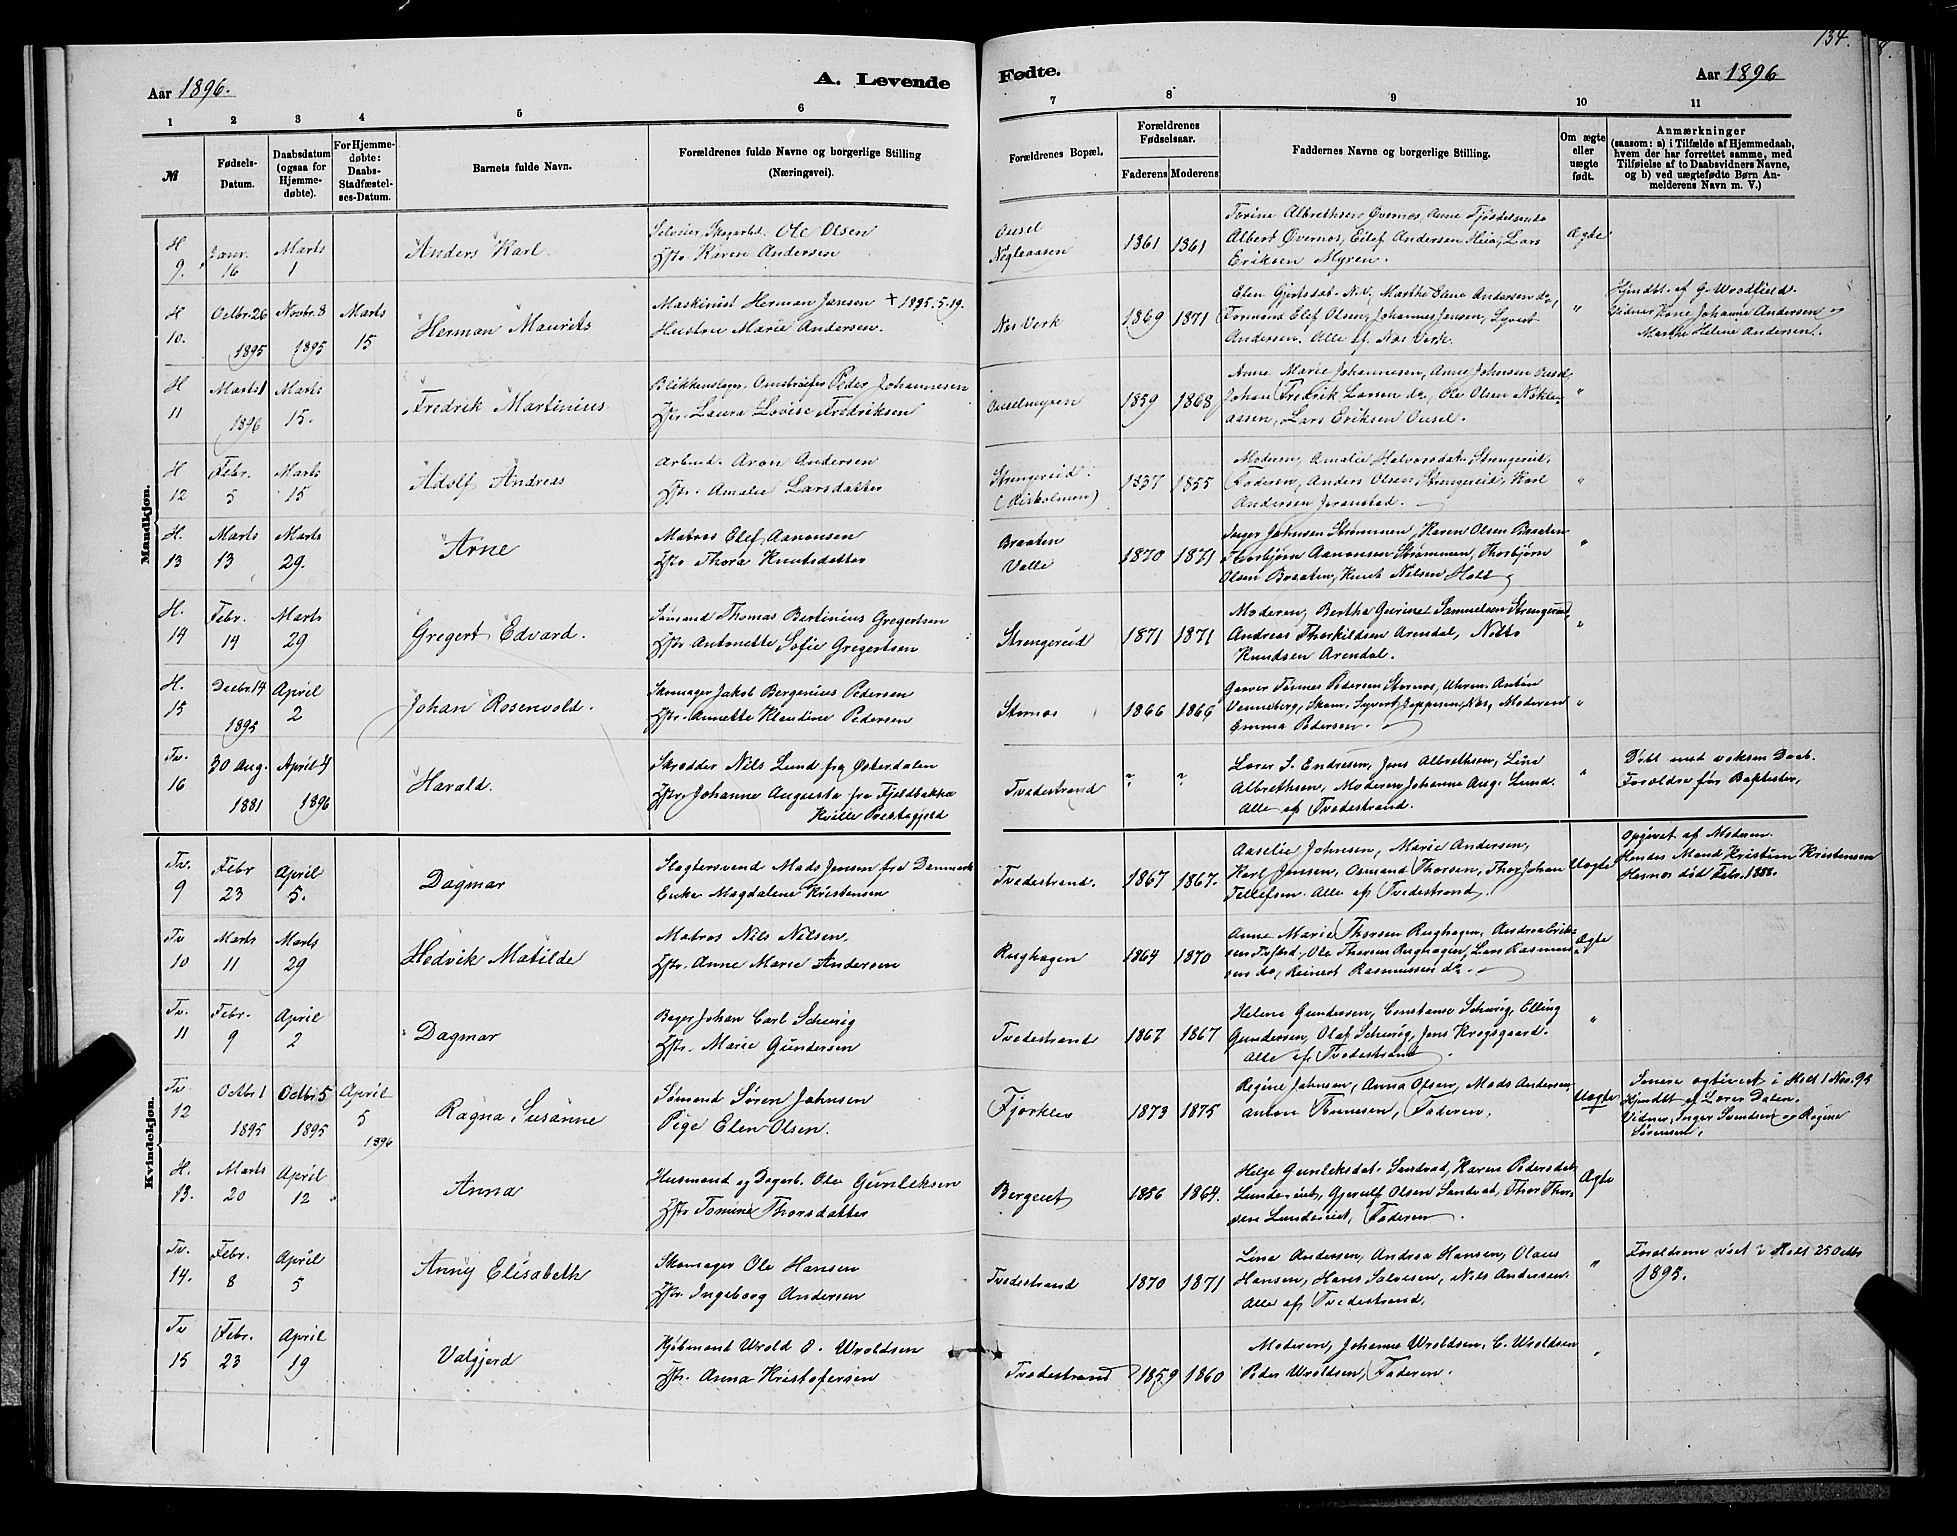 134.
Aar 1896.
A. Levende
Fødte.
Aar 1896
1 2 3 4 5 6 7 8 9 10 11
№
Fødsels-Datum.
Daabsdatum (ogsaa for Hjemme-døbte).
For Hjemme-døbte: Daabs-Stadfæstel-ses-Datum.
Barnets fulde Navn.
Forældrenes fulde Navne og borgerlige Stilling (Næringsvei).
Forældrenes Bopæl.
Forældrenes Fødselsaar.
Faderens Moderens
Faddernes Navne og borgerlige Stilling.
Om ægte eller uægte født.
Anmærkninger
(saasom: a) i Tilfælde af Hjemmedaab, hvem der har forrettet samme, med Tilføielse af to Daabsvidners Navne, og b) ved uægtefødte Børn An-melderens Navn m. V.)
Mandkjøn.
H 9. Janr. 16 Marts 1
Anders Karl.
Selveier, Skogarbd. Ole Olsen
Hstr. Karen Andersen
Ousel
1861 1861
Torine Albrethsen Øvernes, Anne
Albert Øvernes, Eilef Andersen Heia, Lars
Eriksen Myren.
Ægte
H 10. Octbr. 26 1895 Novbr. 8 1895 Marts 15
Herman Maurits
Maskinist Herman Jansen + 1895.5.19.
Hustru Marie Andersen.
Nes Verk
1869 1871
Elen Gjertsdat. N.V., Marthe Elene Andersen do,
Tormond Elef Olsen, Johannes Jensen, Syvert
Andersen. Alle af Nes Verk.
"
Hjmdbt. af G. Woodfield.
Vidner Kone Johanne Andersen og
Marthe Helene Andersen.
H 11 Marts 1 1896 Marts 15.
Fredrik Martinius
Blikkenslager, Peder Johannesen
Hstr. Laura Lovise Fredriksen
Ouselmyren
1859 1868
Anne Marie Johannesen, Anne Johnsen Ousel
Johan Fredrik Larsen do, Ole Olsen Nøkle-
aasen, Lars Eriksen Ousel.
"
H 12 Febr. 5 Marts 15
Adolf Andreas
Arbmd. Aron Andersen
Hstr. Amalie Larsdatter
Strengereid
1837 1855
Moderen, Amalie Halvorsdat. Strengereid,
Faderen, Anders Olsen, Strengereid, Karl
Andersen
"
H. 13 Marts 13 Marts 29.
Arne
Matros Elef Aanonsen
Hstr Thora Knutsdatter
Braaten
Valle
1870 1871
Inger Johnsen Strømmen, Karen Olsen Braaten
Thorbjørn Aanonsen Strømmen, Thorbjørn
Olsen Braaten, Knut Nilsen Holt
"
H. 14 Febr. 14 Marts 29
Gregert Edvard.
Sømand Thomas Bertinius Gregertsen
Hstr. Antonette Sofie Gregertsen
Strengereid
1871 1871
Moderen, Berthe Gurine Samuelsen Strengereid,
Andreas Thorkildsen Arendal, Nils
Knudsen Arendal.
"
H. 15 Decbr. 14 1895 April 2
Johan Rosenvold.
Skomager Jakob Bergenius Pedersen
Hstr. Annette Klaudine Pedersen
Stornes
1866 1866
Garver Tønnes Pedersen Stornes, Uhrm. Anton
Venneberg, Skom. Syvert Jeppesen, Nes, Moderen
Emma Pedersen.
"
Tv. 16 30 Aug. 1881 April 4 1896
Harald.
Skrædder Nils Lund fra Østerdalen
Hstr. Johanne Augusta fra Fjeldbakka
Kville Prestegjeld
Tvedestrand
? ?
Lærer S. Endresen, Jens Albrethsen, Line
Albrethsen, Moderen Johanne Aug. Lund.
Alle af Tvedestrand.
"
Døbt med voksen Daab.
Forældre før Baptister,
Kvindekjøn.
Tv. 9 Febr 23 April 5.
Dagmar
Slagtersvend Mads Jensen fra Danmark
Enke Magdalene Kristensen
Tvedestrand.
1867 1867.
Aaselie Johnsen, Marie Andersen,
Karl Jensen, Osmund Thorsen, Thor Johan
Tellefsen. Alle af Tvedestrand.
Uægte
Opgivet af Moderen.
Hendes Mand, Kristian Kristensen
død Febr. 1888.
Tv 10 Marts 11 Marts 29
Hedvik Matilde
Matros Nils Nilsen,
Hstr. Anne Marie Andersen
Rughagen
1864 1870
Anne Marie Thorsen Rughagen, Andrea Erik-
sen, Ole Thorsen Rughagen, Lars Rasmus-
sen do, Reinert Rasmussen do.
Ægte
Tv. 11 Febr. 9 April 2
Dagmar
Bager Johan Carl Scheurig
Hstr. Marie Gundersen
Tvedestrand
1867 1867
Helene Gundersen, Constanse Scheurig, Elling
Gundersen, Olaf Scheurig, Jens Krogsgaard.
Alle af Tvedestrand.
"
Tv 12 Octbr 1 1895 Octbr. 5 1895 April 5 1896
Ragna Susanne
Sømand Søren Johnsen
Pige Elen Olsen.
Fjærkleiv
1873 1875
Regine Johnsen, Anna Olsen, Mads Andersen,
Anton, Faderen.
Uægte
Senere ægteviet i Holt 1 Nov. 95
Hjmdbt. af Lærer Dalen.
Vidner, Inger Svendsen og Regine
Sørensen.
H. 13. Marts 20 April 12
Anna
Husmand og Dagarb. Ole Gunleksen
Hstr. Tomine Thorsdatter
Bergeret
1856 1864.
Helge Gunleksdat. Sandvad, Karen Pedersdat.
Lundereiet, Gjerulf Olsen Sandvad, Thor Thor-
sen Lundereiet, Faderen.
Ægte
Tv. 14. Febr. 8 April 5
Anny Elisabeth
Skomager Ole Hansen
Hstr. Ingeborg Andersen
Tvedestrand
1870 1871
Lina Andersen, Andrea Hansen, Olaus
Hansen, Hans Salvesen, Nils Andersen.
Alle af Tvedestrand.
"
Forældrene viet i Holt 25 Octbr
1895.
Tv 15 Febr. 23 April 19
Valgjerd
Kjøbmand Wrold O. Wroldsen
Hstr. Anna Kristofersen
Tvedestrand
1859 1860
Moderen, Johanne Wroldsen, C. Wroldsen
Peder Wroldsen, Faderen.
"